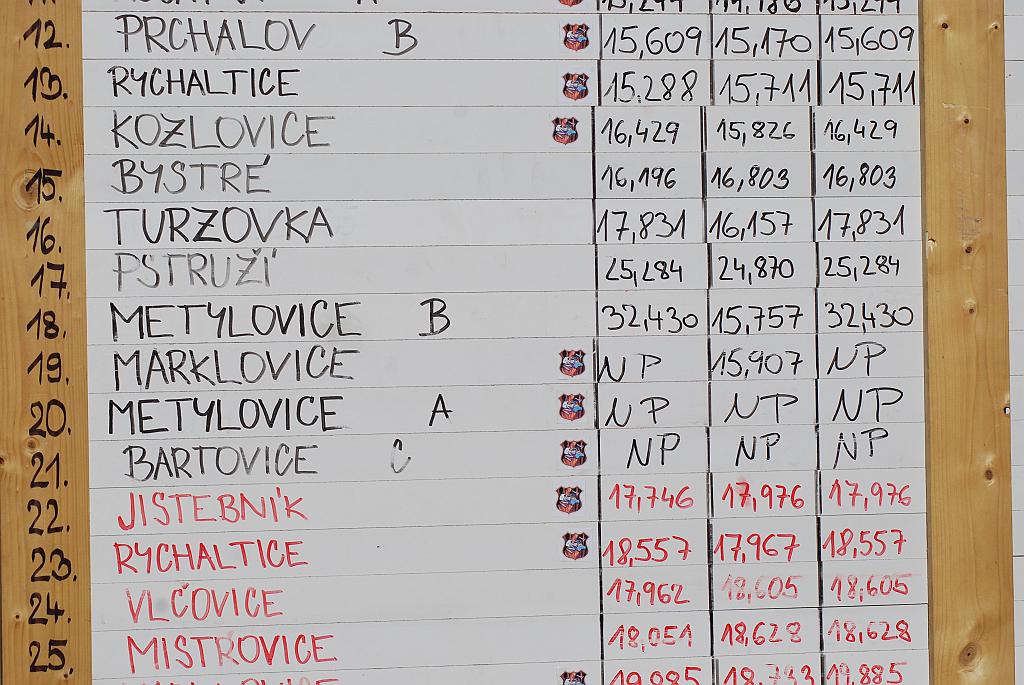 12. PRCHALOV B 15,609 15,170 15,609
13. RYCHALTICE 15.288 15,711 15,711
14. KOZLOVICE 16,429 15,826 16,429
15. BYSTRÉ 16,196 16,803 16,803
16. TURZOVKA 17,831 16,157 17,831
17. PSTRUŽÍ 25,284 24,870 25,284
18. METYLOVICE B 32,430 15,757 32,430
19. MARKLOVICE NP 15,907 NP
20. METYLOVICE A NP NP NP
21. BARTOVICE C NP NP NP
22. JISTEBNÍK 17,746 17,976 17,976
23. RYCHALTICE 18,557 17,967 18,557
24. VLČOVICE 17,962 18,605 18,605
25. MISTROVICE 18,051 18,628 18,628